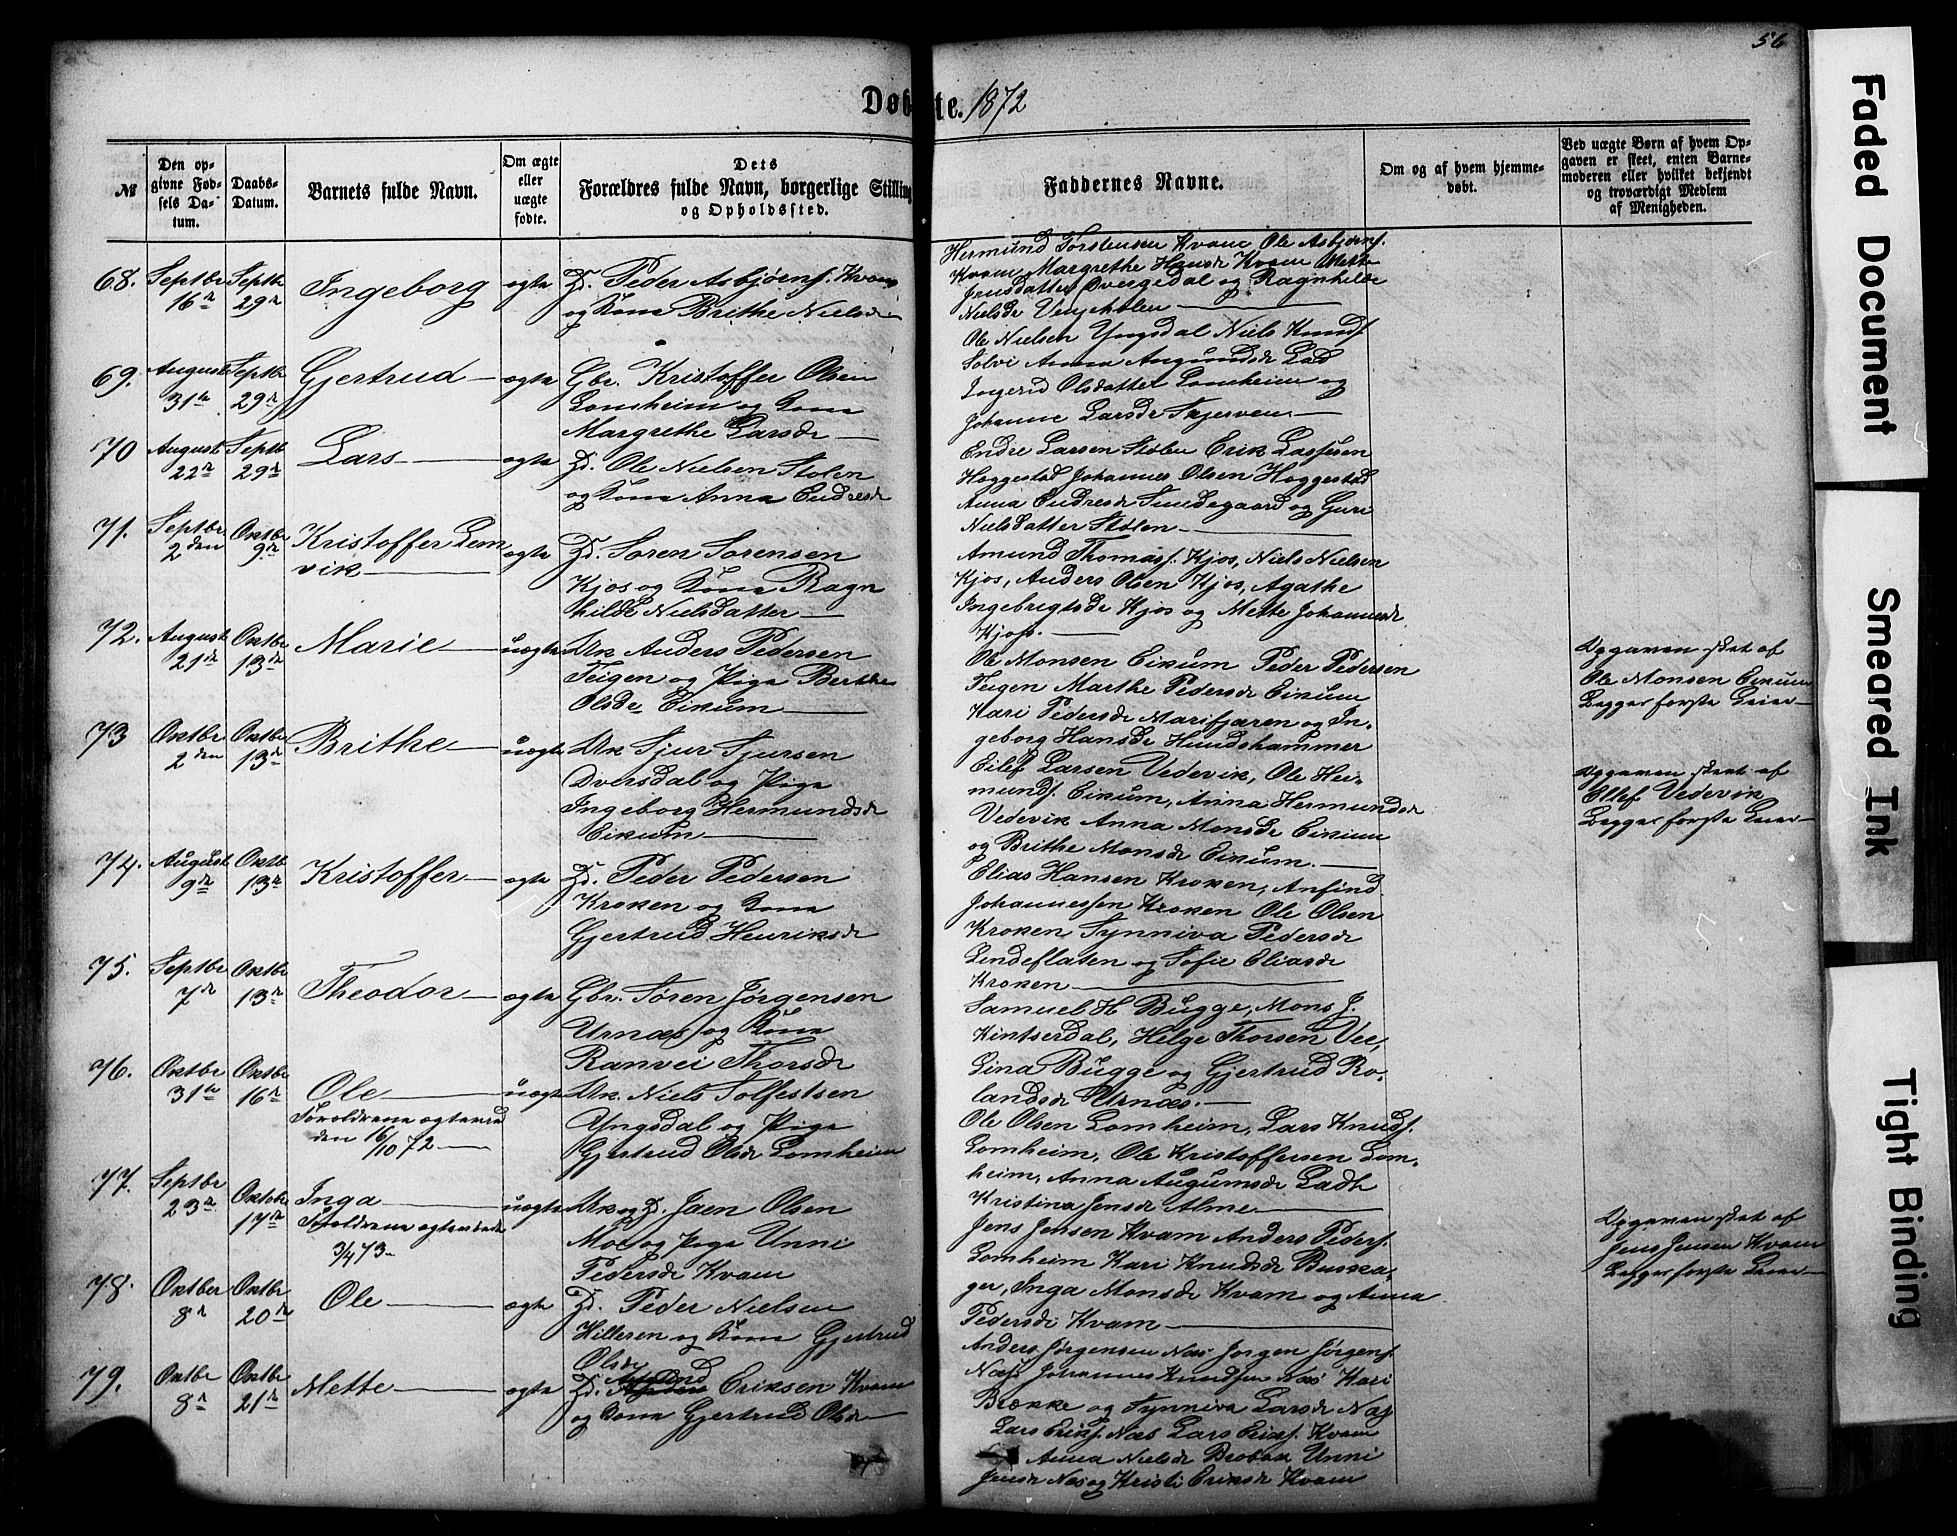 56
Døbte. 1872
№
Den opgivne Fødsels Datum.
Daabs-Datum.
Barnets fulde Navn.
Om ægte eller uægte fødte.
Dets Forældres fulde Navn, borgerlige Stilling og Opholdssted.
Faddernes Navne.
Om og af hvem hjemmedøbt.
Ved uægte Børn af hvem Opgaven er skeet, enten Barnemoderen eller hvilket bekjendt og troværdigt Medlem af Menigheden.
68. Septbr 16de Septbr 29de Ingeborg ægte Gd. Peder Asbjørns. Kvam
og Kone Brithe Nielsdr
Hermund Torstensen Kvam Ole Asbjørns.
Kvam Margrethe Hansdr Kvam Mette
Jensdatter Øvergedal og Ragnhilde
Nielsdr Venjeholen
69. August 31te Septbr 29de Gjertrud ægte Gbr. Kristoffer Olsen
Lomheim og Kone
Margrethe Larsdr
Ole Nielsen Yngsdal Niels Knuds.
Solvi Anna Amundsdr Lad
Ingerid Olsdatter Lomheim og
Johanne Larsdr Skjerven
70 August 22de Septb 29de Lars ægte Gd. Ole Nielsen Stølen
og Kone Anna Endresdr
Endre Larsen Stølen Erik Lassesen
Hoggestad Johannes Olsen Hoggestad
Anna Endresdr Sundegaard og Guri
Nielsdatter Stølen
71. Septbr 2den Oktbr 9de Kristoffer Lem
vik ægte Gd. Søren Sørensen
Kjos og Kone Ragn
hilde Nielsdatter
Amund Thomass. Kjos, Niels Nielsen
Kjos, Anders Olsen Kjos, Agathe
Ingebrigtsdr Kjos og Mette Johannesdr
Kjos.
72. August 21de Oktbr 13de Marie uægte Uk Anders Pedersen
Teigen og Pige Berthe
Olsdr Eikum
Ole Monsen Eikum Peder Pedersen
Teigen Marthe Pedersdr Eikum
Kari Pedersdr Marifjæren og In-
geborg Hansdr Hundshammer
Opgaven skeet af
Ole Monsen Eikum
Begges første Leier
73 Oktbr 2den Oktbr 13de Brithe uægte Uk Sjur Sjursen
Dversdal og Pige
Ingeborg Hermundsdr
Eikum
Eilef Larsen Vedevik, Ole Her-
munds. Eikum, Anna Hermundsdr
Vedevik Anna Monsdr Eikum
og Brithe Monsdr Eikum.
Opgaven skeet af
Ellef Vedevik
Begges første Leier
74. August 9de Oktb 13de Kristoffer ægte Gd. Peder Pedersen
Kroken og Kone
Gjertrud Henriksdr
Elias Hansen Kroken, Anfind
Johannessen Kroken Ole Olsen
Kroken Synniva Pedersdr
Lendeflaten og Sofie Eliasdr
Kroken
75. Septbr 7de Oktbr 13de Theodor ægte Gbr. Søren Jørgensen
Urnæs og Kone
Ranvei Thorsdr
Samuel H Bugge, Mons J.
Kintserdal, Helge Thorsen Vee,
Lina Bugge og Gjertrud Ro-
landsdr Urnæs.
76. Oktbr 31te Oktbr 16de Ole uægte Uk. Niels Solfestsen
Forældrene ægteviede
den 16/10 72
Yngsdal og Pige
Gjertrud Olsdr Lomheim
Ole Olsen Lomheim, Lars Knuds.
Lomheim, Ole Kristoffersen Lom-
heim, Anna Augumsdr Ladh
Kristina Jensdr Alme
77. Septbr 23de Oktobr 17de Inga uægte Uk og Gd. Jaen Olsen
Forældrene ægteviede
3/4 73
Moe og Pige Unni
Pedersdr Kvam
Jens Jensen Kvam Anders Peders.
Lomheim Kari Knudsdr Buska-
ger, Inga Monsdr Kvam og Anna
Pedersdr Kvam
Opgaven skeet af
Jens Jensen Kvam
Begges første Leier
78. Oktber 8de Oktbr 20de Ole ægte Gd. Peder Nielsen
Hilleren og Kone Gjertrud
Olsdr
Anders Jørgensen Næs Jørgen Jørgens.
Næs Johannes Knudsen Næs Kari
Brække og Synniva Larsdr Næs
79. Oktbr 8de Oktbr 21de Mette ægte Gd. Eriksen Kvam
og Kone Gjertrud Olsdr
Lars Eriks. Næs Lars Erics. Kvam
Anna Nielsdr Brobak Unni
Jensdr Næs og Kristi Eriksdr Kvam
Faded Document
Smeared Ink
Tight Binding